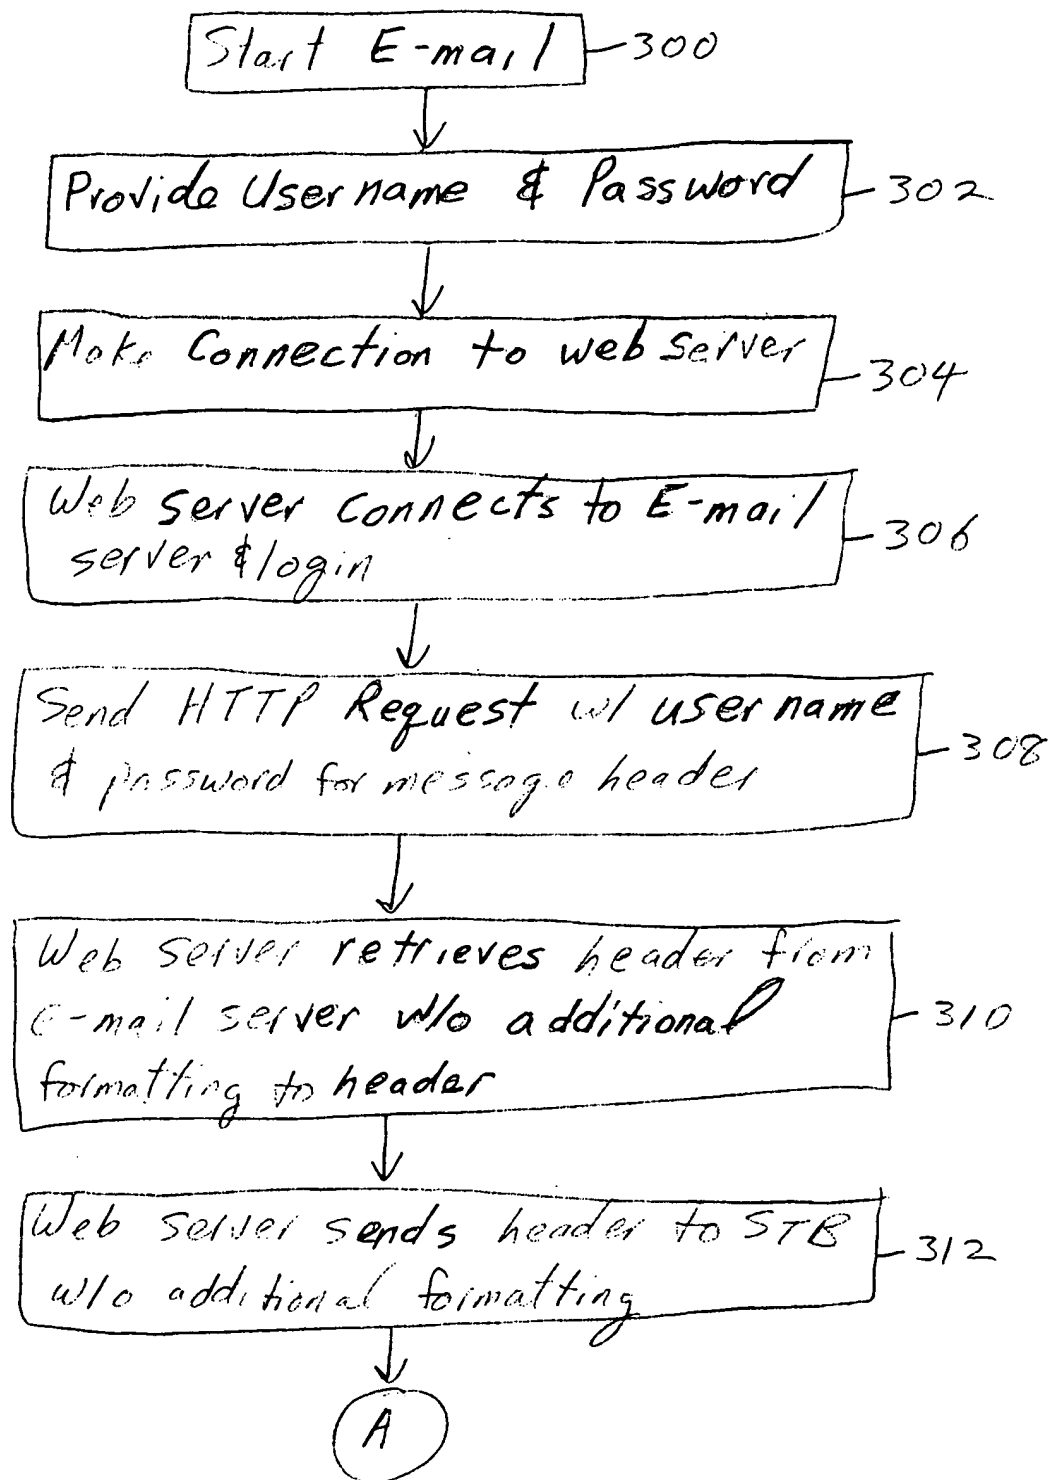 Start E-mail 300
Provide Username & Password 302
Make Connection to web server 304
Web server connects to E-mail 306
server & login
Send HTTP Request w/ username 308
& password for message header
Web server retrieves header from
E-mail server w/o additional 310
formatting to header
Web server sends header to STB 312
w/o additional formatting
A